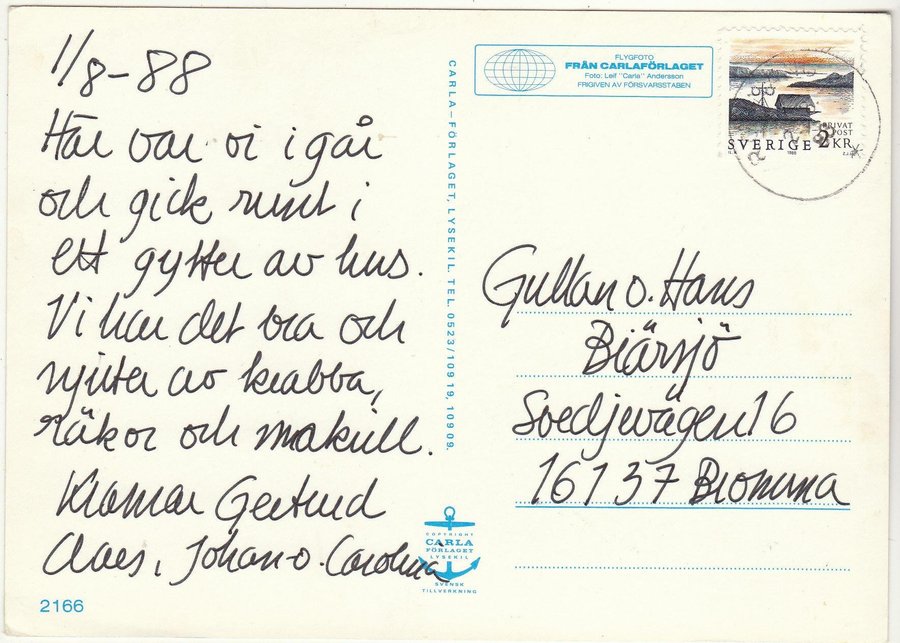 1/8-88
Här var vi i går
och gick runt i
ett gytter av hus.
Vi har det bra och
njuter av krabba,
räkor och makrill.
Kramar Gertrud
Claes, Johan o. Carolina
2166
CARLA-FÖRLAGET, LYSEKIL. TEL. 0523/109 19, 109 09.
FLYGFOTO
FRÅN CARLAFÖRLAGET
Foto: Leif "Carla" Andersson
FRIGIVEN AV FÖRSVARSSTABEN
PRIVAT
POST
SVERIGE 2 KR
1988
Gullan o. Hans
Biärsjö
Svedjevägen 16
161 37 Bromma
COPYRIGHT
CARLA
FÖRLAGET
LYSEKIL
SVENSK
TILLVERKNING